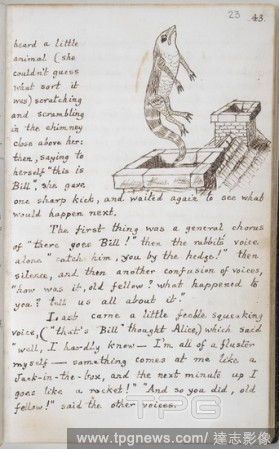 23 43.
heard a little
animal (she
couldn't guess
what sort it
was) scratching
and scrambling
in the chimney
close above her:
then, saying to
herself "this is
Bill", she gave
one sharp kick, and waited again to see what
would happen next.
The first thing was a general chorus
of "there goes Bill!" then the rabbit's voice
alone "catch him, you by the hedge!" then
silence, and then another confusion of voices,
"how was it, old fellow? what happened to
you? tell us all about it."
Last came a little feeble squeaking
voice, ("that's Bill" thought Alice,) which said
"well, I hardly know — I'm all of a fluster
myself — something comes at me like a
Jack-in-the-box, and the next minute up I
goes like a rocket!" "And so you did, old
fellow!" said the other voices.
TPG
www.tpgnews.com/達志影像